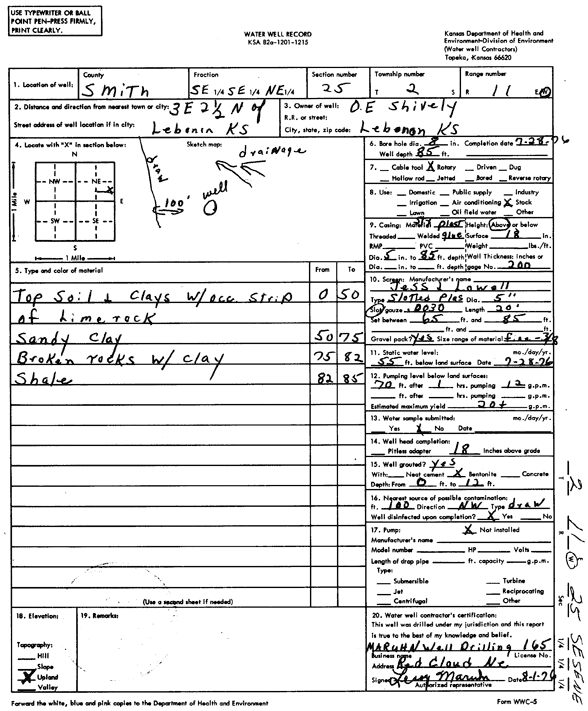 USE TYPEWRITER OR BALL
POINT PEN-PRESS FIRMLY,
PRINT CLEARLY.
WATER WELL RECORD
KSA 82a-1201-1215
Kansas Department of Health and
Environment-Division of Environment
(Water well Contractors)
Topeka, Kansas 66620
1. Location of well: County Smith Fraction SE 1/4 SE 1/4 NE 1/4 Section number 25 Township number T 2 S Range number R 11 E/W
2. Distance and direction from nearest town or city: 3E 2½ N of
Street address of well location if in city: Lebonin KS
3. Owner of well: O.E Shively
R.R. or street:
City, state, zip code: Lebonon KS
4. Locate with "X" in section below:
N
NW NE
W E
SW SE
S
1 Mile
1 Mile
Sketch map:
drainage
draw
100'
well
6. Bore hole dia. 8 in. Completion date 7-28-76
Well depth 85 ft.
7. Cable tool X Rotary Driven Dug
Hollow rod Jetted Bored Reverse rotary
8. Use: Domestic Public supply Industry
Irrigation Air conditioning X Stock
Lawn Oil field water Other
9. Casing: Material plast Height: Above or below
Threaded Welded glue Surface 18 in.
RMP PVC Weight lbs./ft.
Dia. 5 in. to 85 ft. depth Wall Thickness: inches or
Dia. in. to ft. depth gage No. 200
10. Screen: Manufacturer's name
Jess & Lowell
Type Slotted Plas Dia. 5"
Slot/gauze .0030 Length 20'
Set between 65 ft. and 85 ft.
ft. and ft.
Gravel pack? Yes Size range of material fine-3/8
11. Static water level: mo./day/yr.
55 ft. below land surface Date 7-28-76
12. Pumping level below land surfaces:
70 ft. after 1 hrs. pumping 12 g.p.m.
ft. after hrs. pumping g.p.m.
Estimated maximum yield 20+ g.p.m.
13. Water sample submitted: mo./day/yr.
Yes X No Date
14. Well head completion:
Pitless adapter 18 Inches above grade
15. Well grouted? Yes
With: Neat cement X Bentonite Concrete
Depth: From 0 ft. to 12 ft.
16. Nearest source of possible contamination:
ft. 100 Direction NW Type draw
Well disinfected upon completion? X Yes No
17. Pump: X Not installed
Manufacturer's name
Model number HP Volts
Length of drop pipe ft. capacity g.p.m.
Type:
Submersible Turbine
Jet Reciprocating
Centrifugal Other
5. Type and color of material From To
Top Soil & Clays w/occ strip 0 50
of limerock
Sandy Clay 50 75
Broken rocks w/ clay 75 82
Shale 82 85
(Use a second sheet if needed)
18. Elevation:
Topography:
Hill
Slope
X Upland
Valley
19. Remarks:
20. Water well contractor's certification:
This well was drilled under my jurisdiction and this report
is true to the best of my knowledge and belief.
MARUHN Well Drilling 165
Business name License No.
Address Red Cloud Ne
Signed Leroy Maruhn Date 8-1-76
Authorized representative
Forward the white, blue and pink copies to the Department of Health and Environment
Form WWC-5
T 2 R 11 E W Sec 25 SE 1/4 SE 1/4 NE 1/4